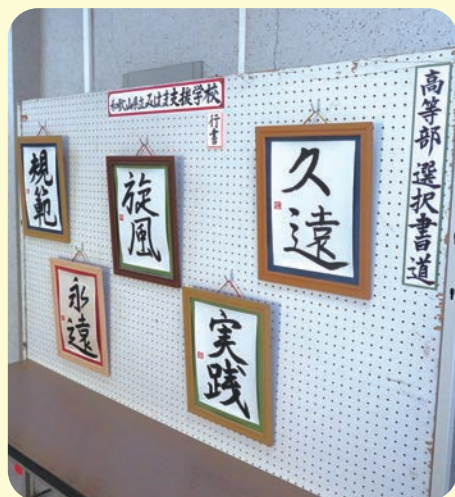 和歌山県立みはま支援学校
行書
高等部 選択書道
規範
旋風
久遠
永遠
実践